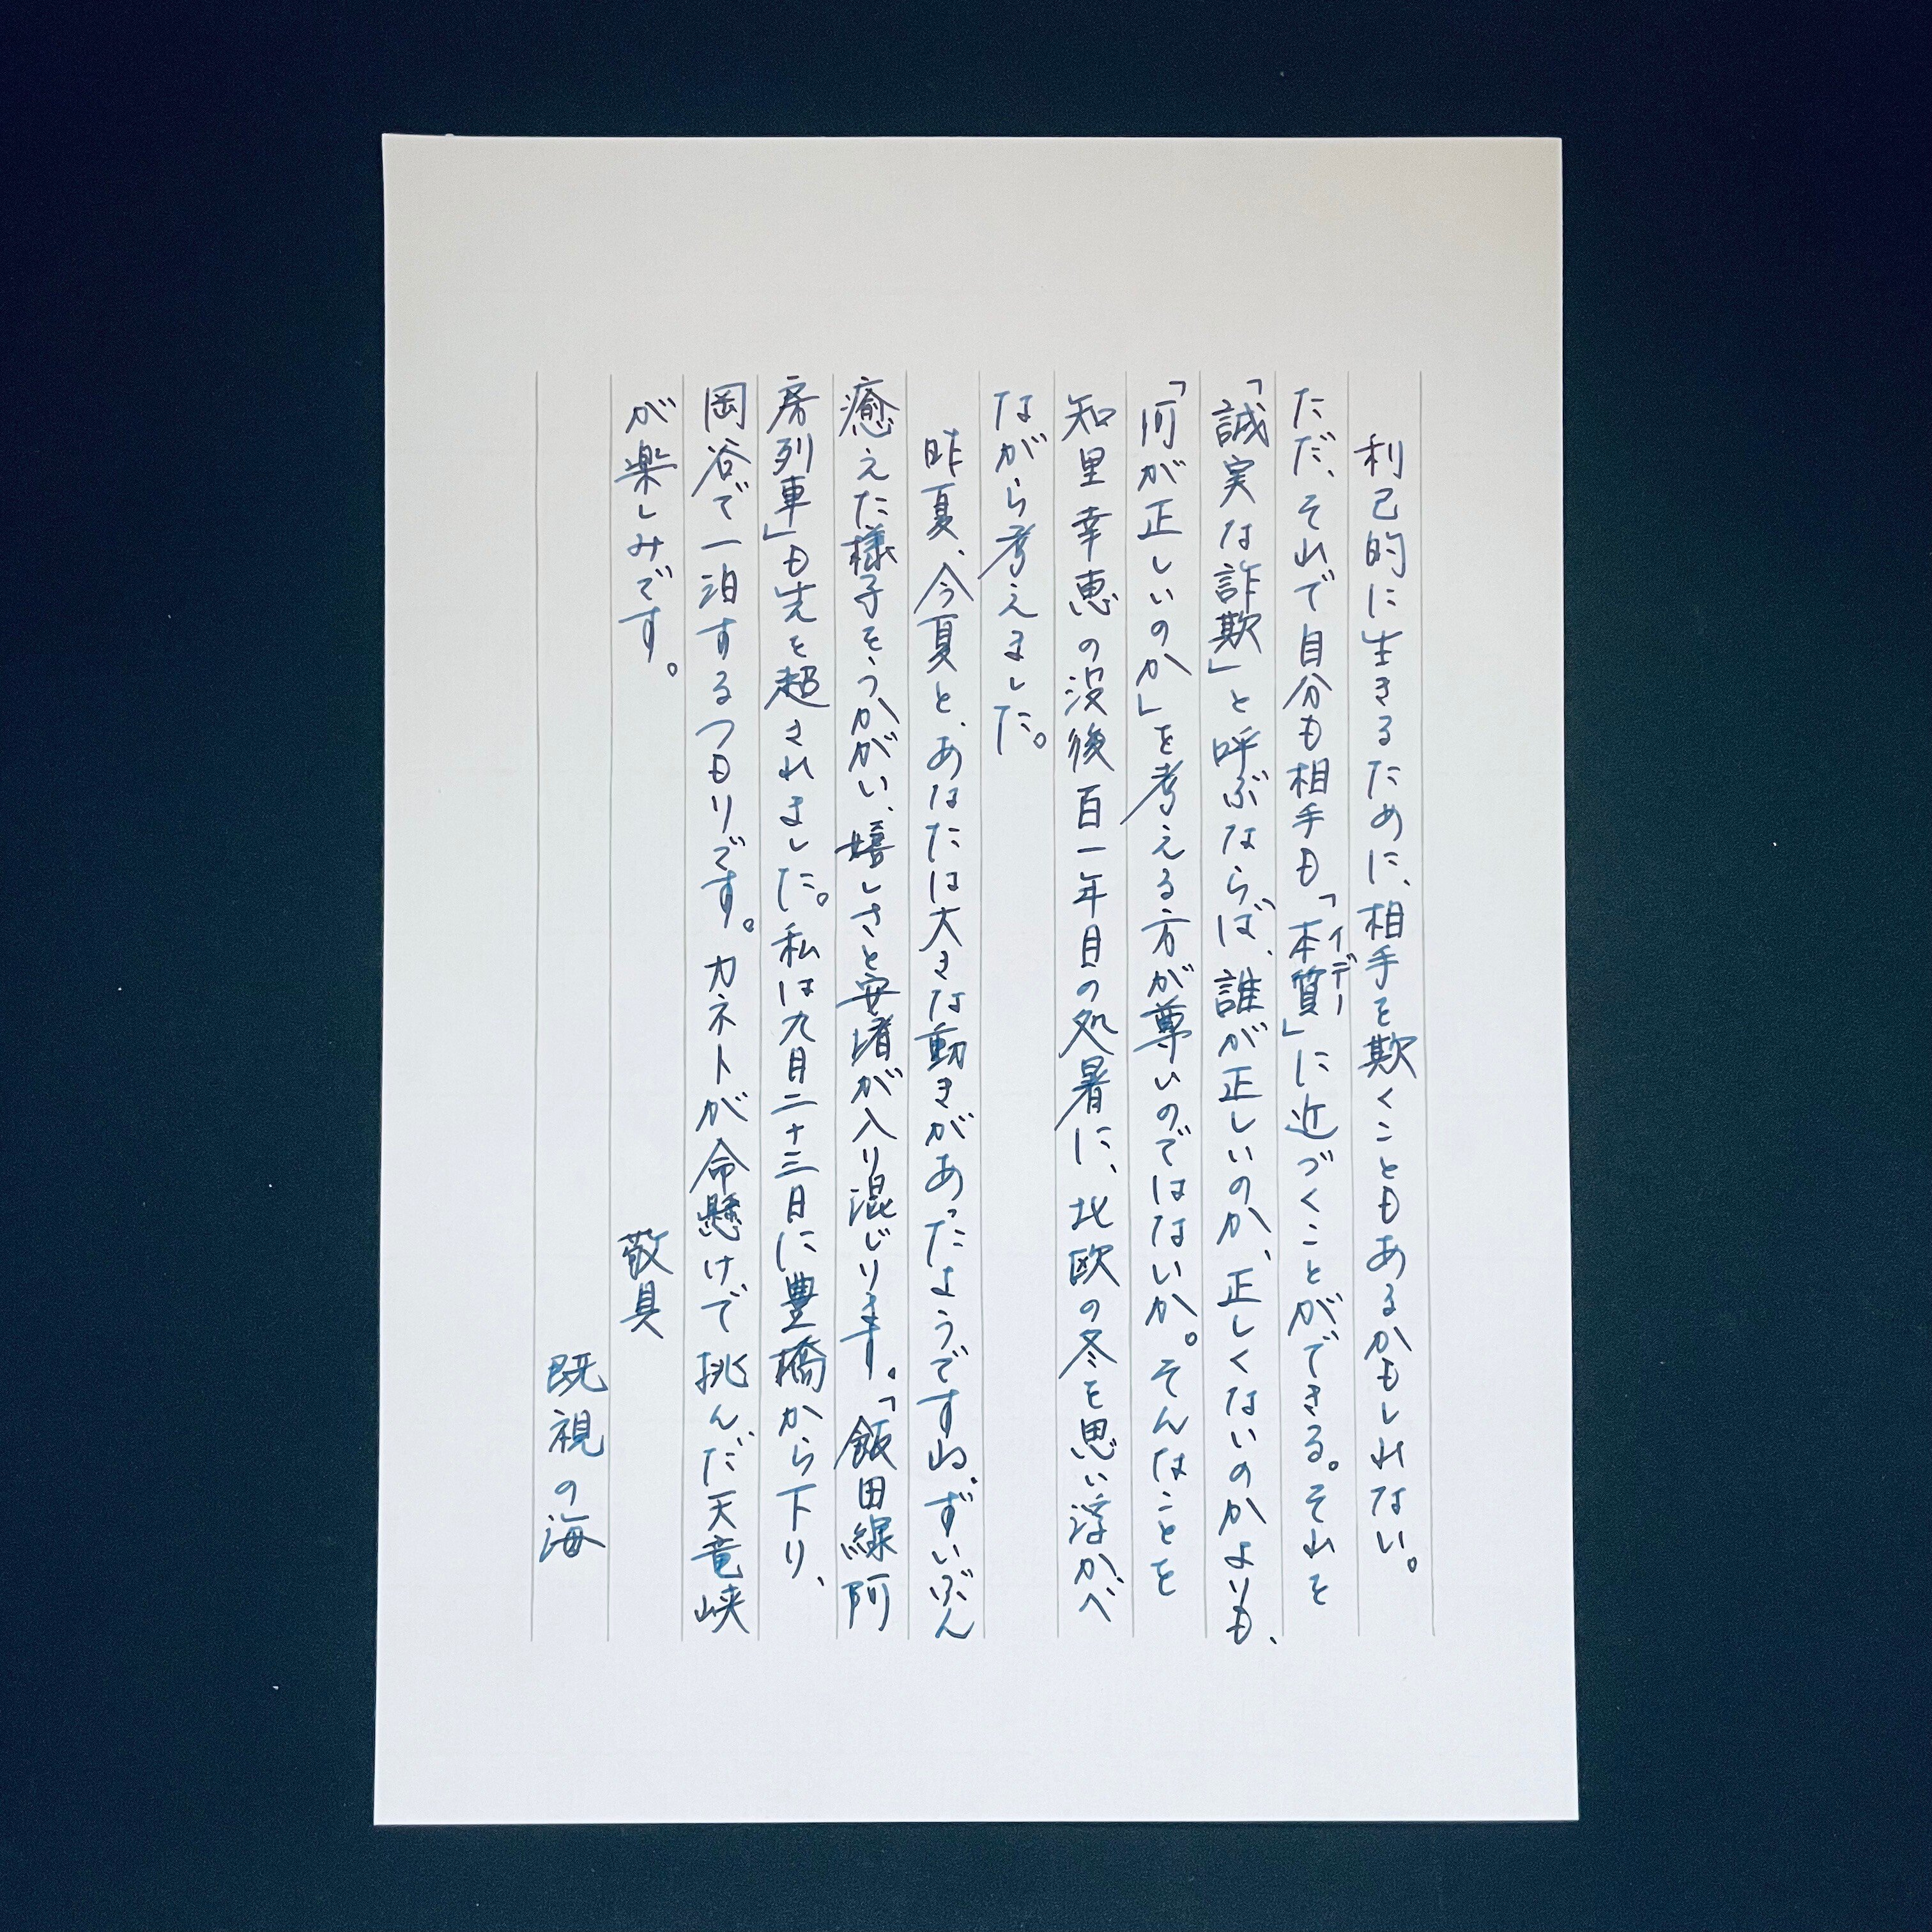 利己的に生きるために、相手を欺くこともあるかもしれない。
ただ、それで自分も相手も「本質」に近づくことができる。それを
イデー
「誠実な詐欺」と呼ぶならば、誰が正しいのか、正しくないのかよりも、
「何が正しいのか」を考える方が尊いのではないか。そんなことを
知里幸恵の没後百一年目の処暑に、北欧の冬を思い浮かべ
ながら考えました。
昨夏、今夏と、あなたは大きな動きがあったようですね。ずいぶん
癒えた様子をうかがい、嬉しさと安堵が入り混じります。「飯田線阿
房列車」も先を超されました。私は九月二十三日に豊橋から下り、
岡谷で一泊するつもりです。カネトが命懸けで挑んだ天竜峡
が楽しみです。
敬具
既視の海